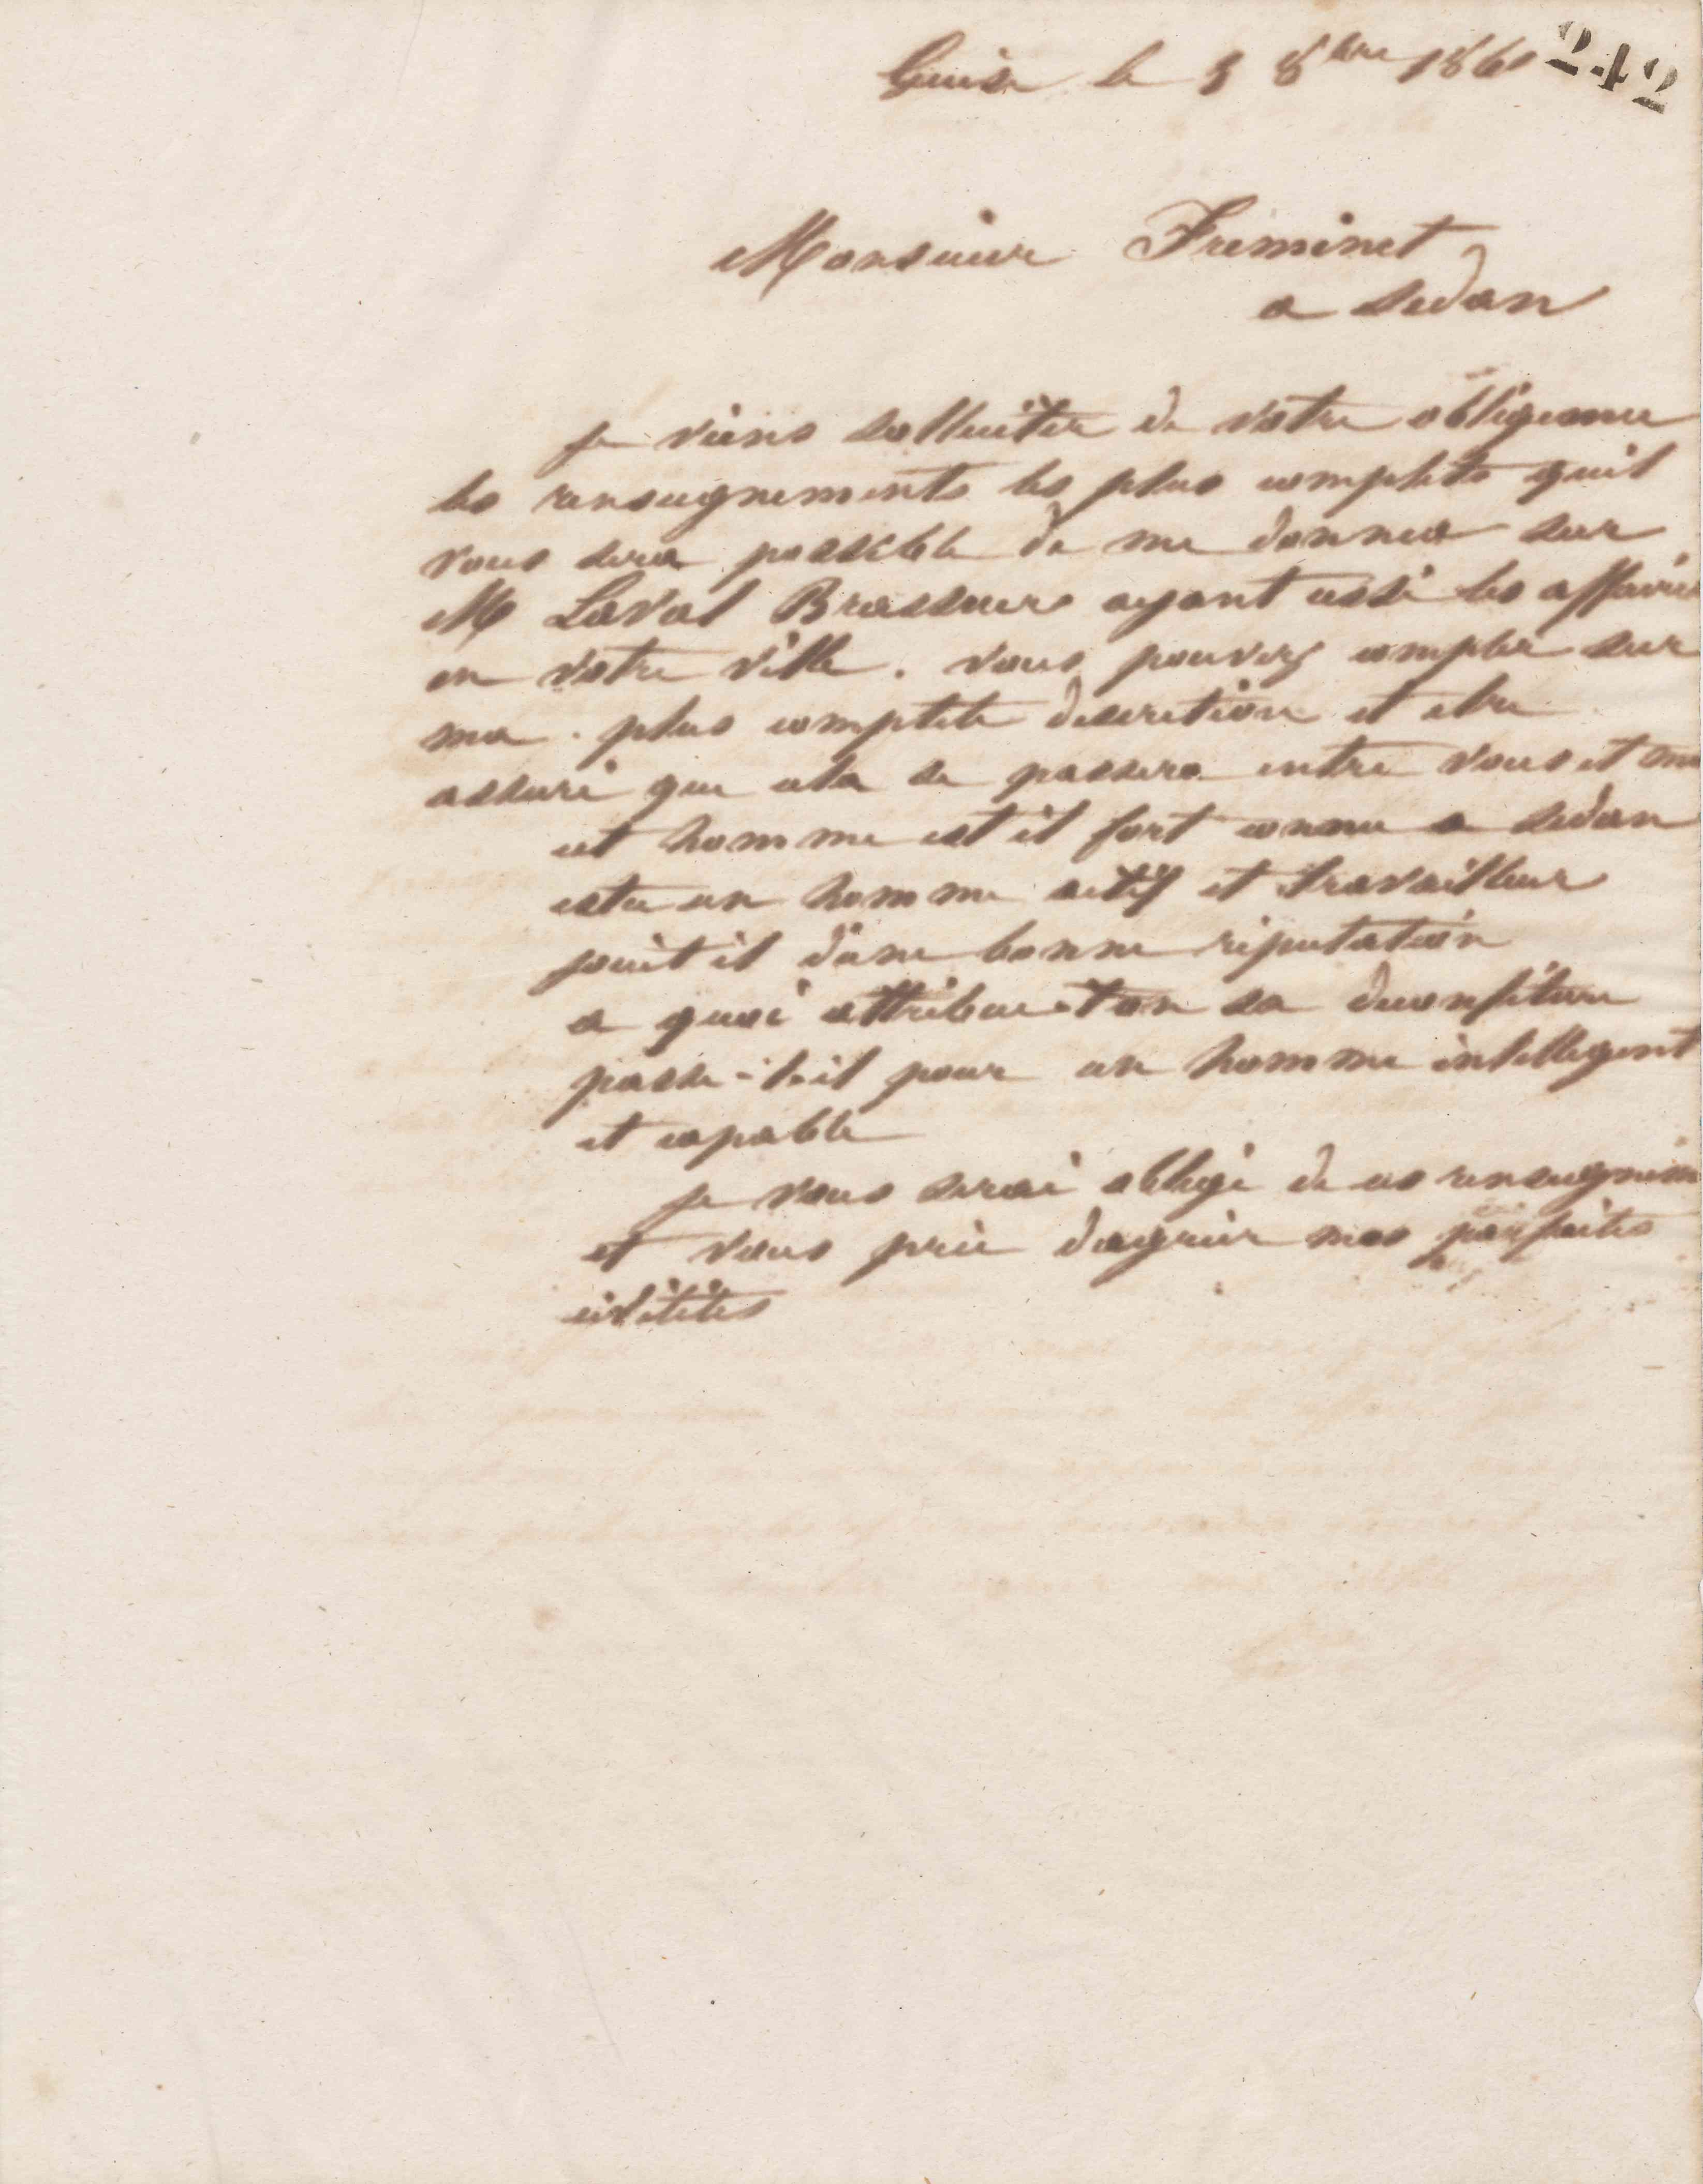 Guise le 3 8bre 1860 242
Monsieur Freminet
a Sedan
je viens solliciter de votre obligeance
les renseignements les plus complets quil
vous sera possible de me donner sur
M Laval Brasseur ayant cessé les affaires
en votre ville. vous pouvez compter sur
ma plus complete discretion et etre
assuré que cela se passera entre vous et moi
cet homme est il fort connu a Sedan
estce un homme actif et travailleur
jouit il d'une bonne réputation
a quoi attribue-t-on sa deconfiture
passe-t-il pour un homme intelligent
et capable
je vous serai obligé de ces renseignem
et vous prie dagréer mes parfaites
civilités